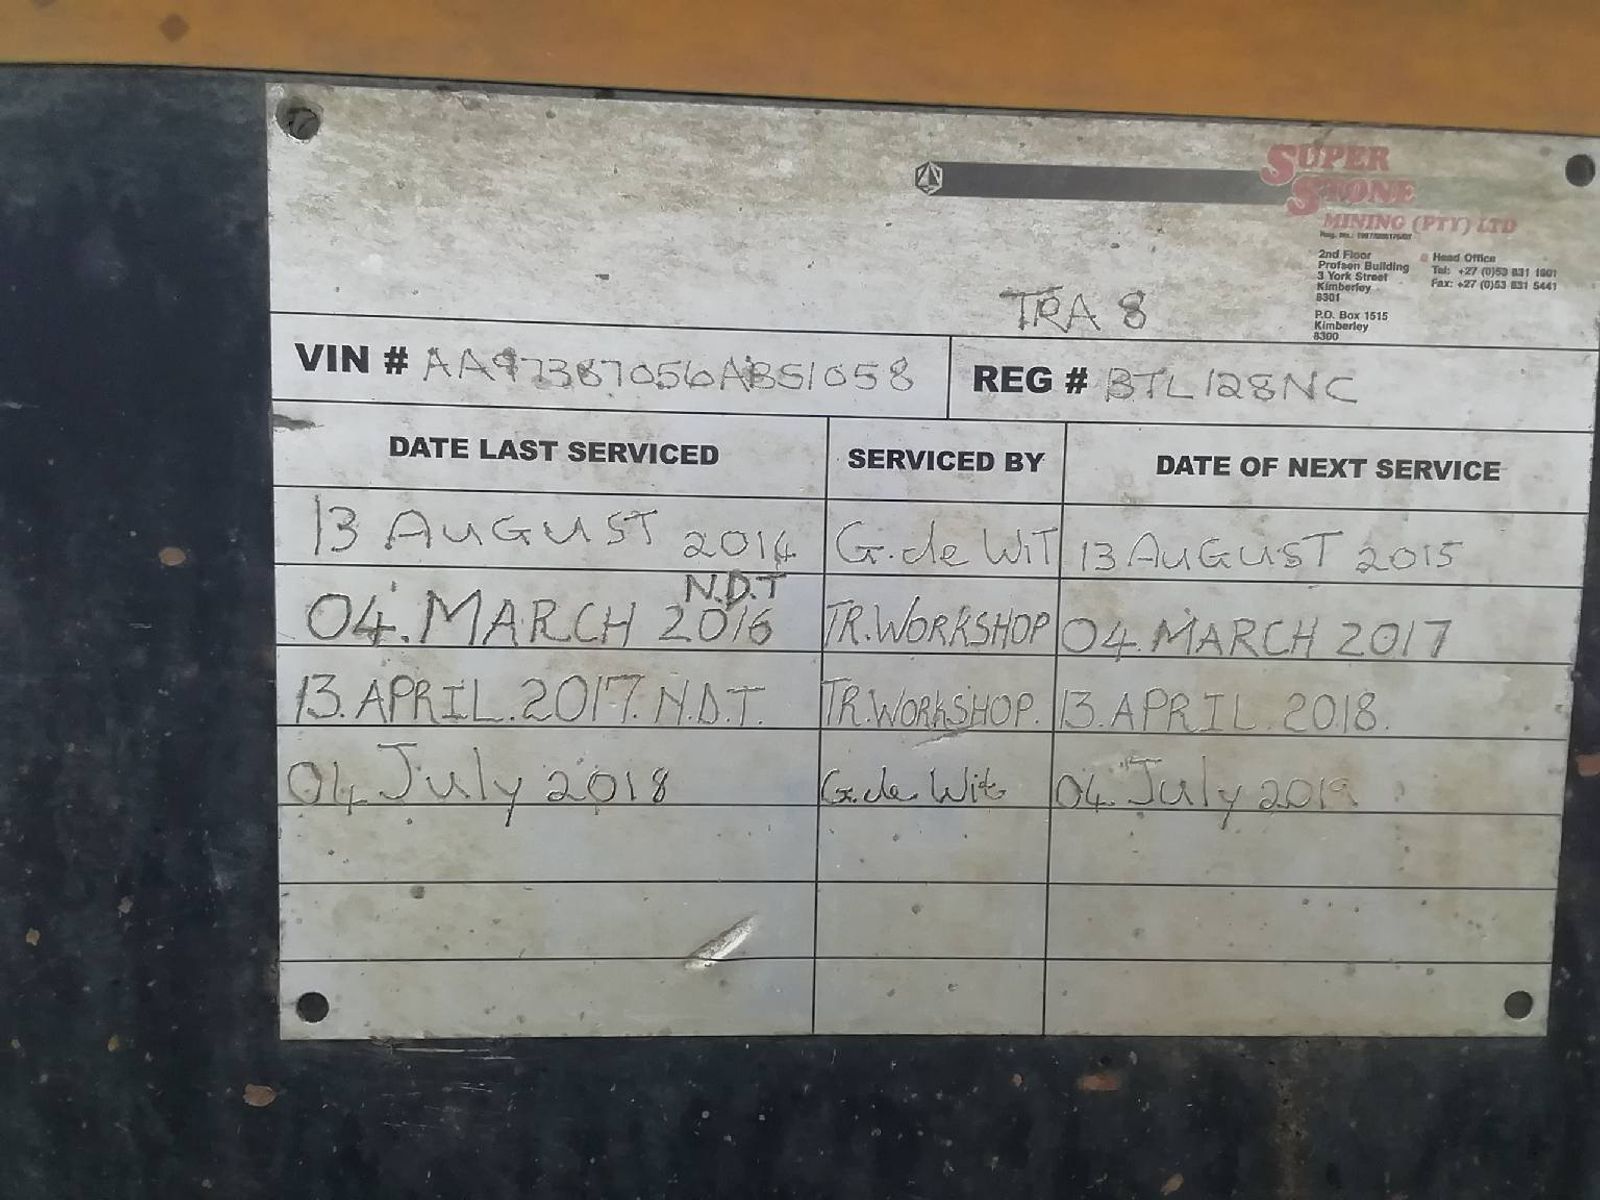 SUPER
STONE
MINING (PTY) LTD
2nd Floor
Profsen Building
3 York Street
Kimberley
8301
P.O. Box 1515
Kimberley
8300
Head Office
Tel: +27 (0)53 831 1801
Fax: +27 (0)53 831 5441
TRA 8
VIN # AA97387056ABS1058
REG # BTL128NC
DATE LAST SERVICED SERVICED BY DATE OF NEXT SERVICE
13 AUGUST 2014 G. de WiT 13 AUGUST 2015
N.D.T
04. MARCH 2016 TR.WORKSHOP 04. MARCH 2017
13. APRIL. 2017. N.D.T. TR.WORKSHOP. 13. APRIL. 2018.
04 July 2018 G. de Wit 04 July 2019